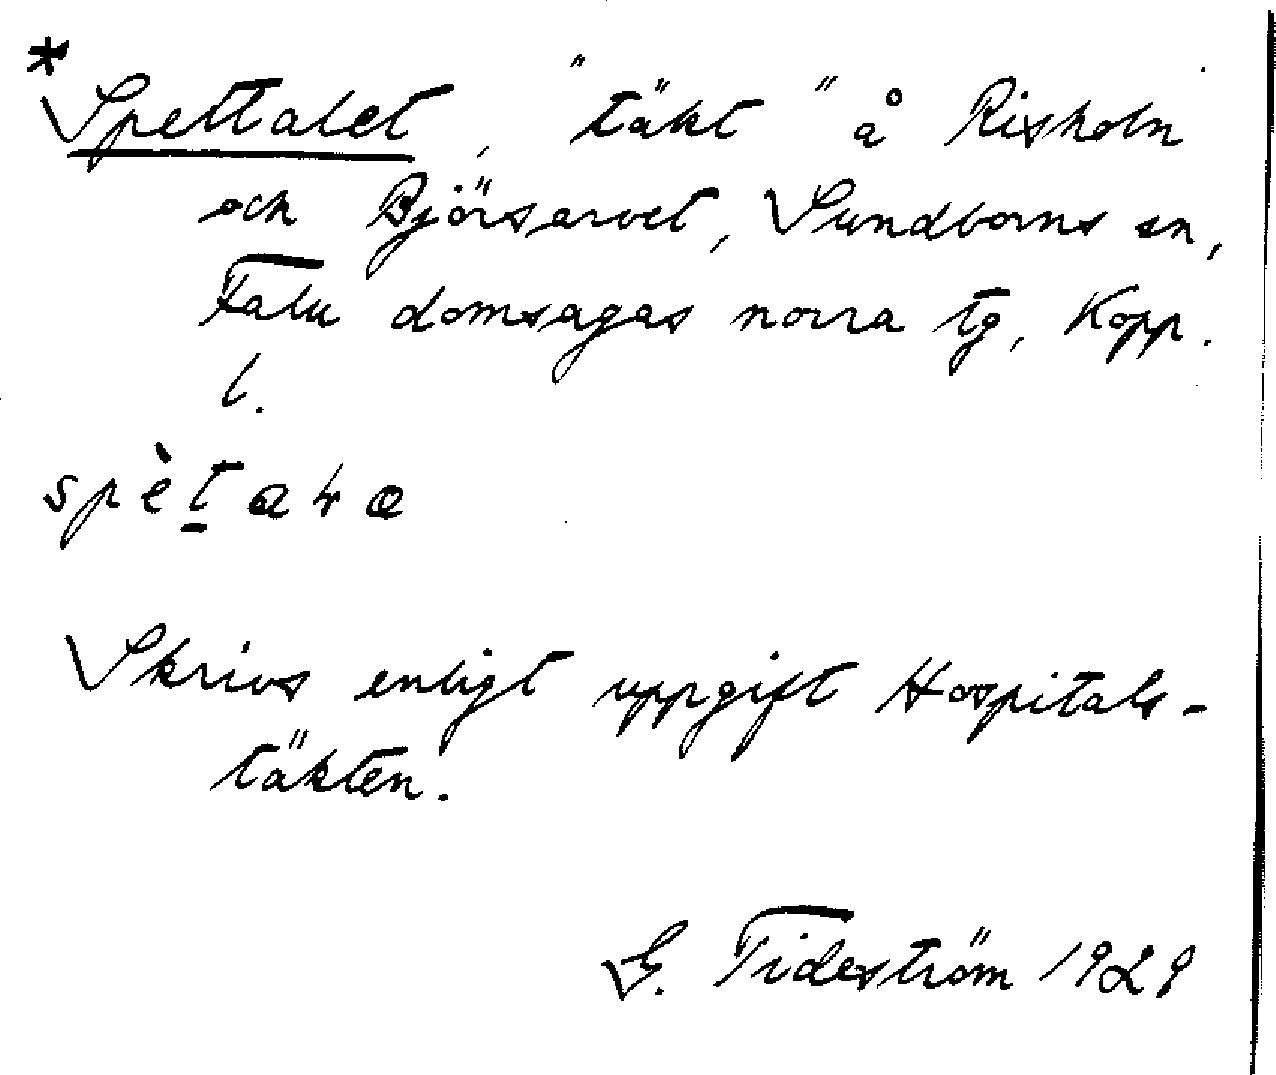 * Spettalet, "täkt" å Risholn
och Björsarvet, Sundborns sn,
Falu domsagas norra tg, Kopp.
l.
spètaɬa
Skrivs enligt uppgift Hospitals-
täkten.
G. Tideström 1929